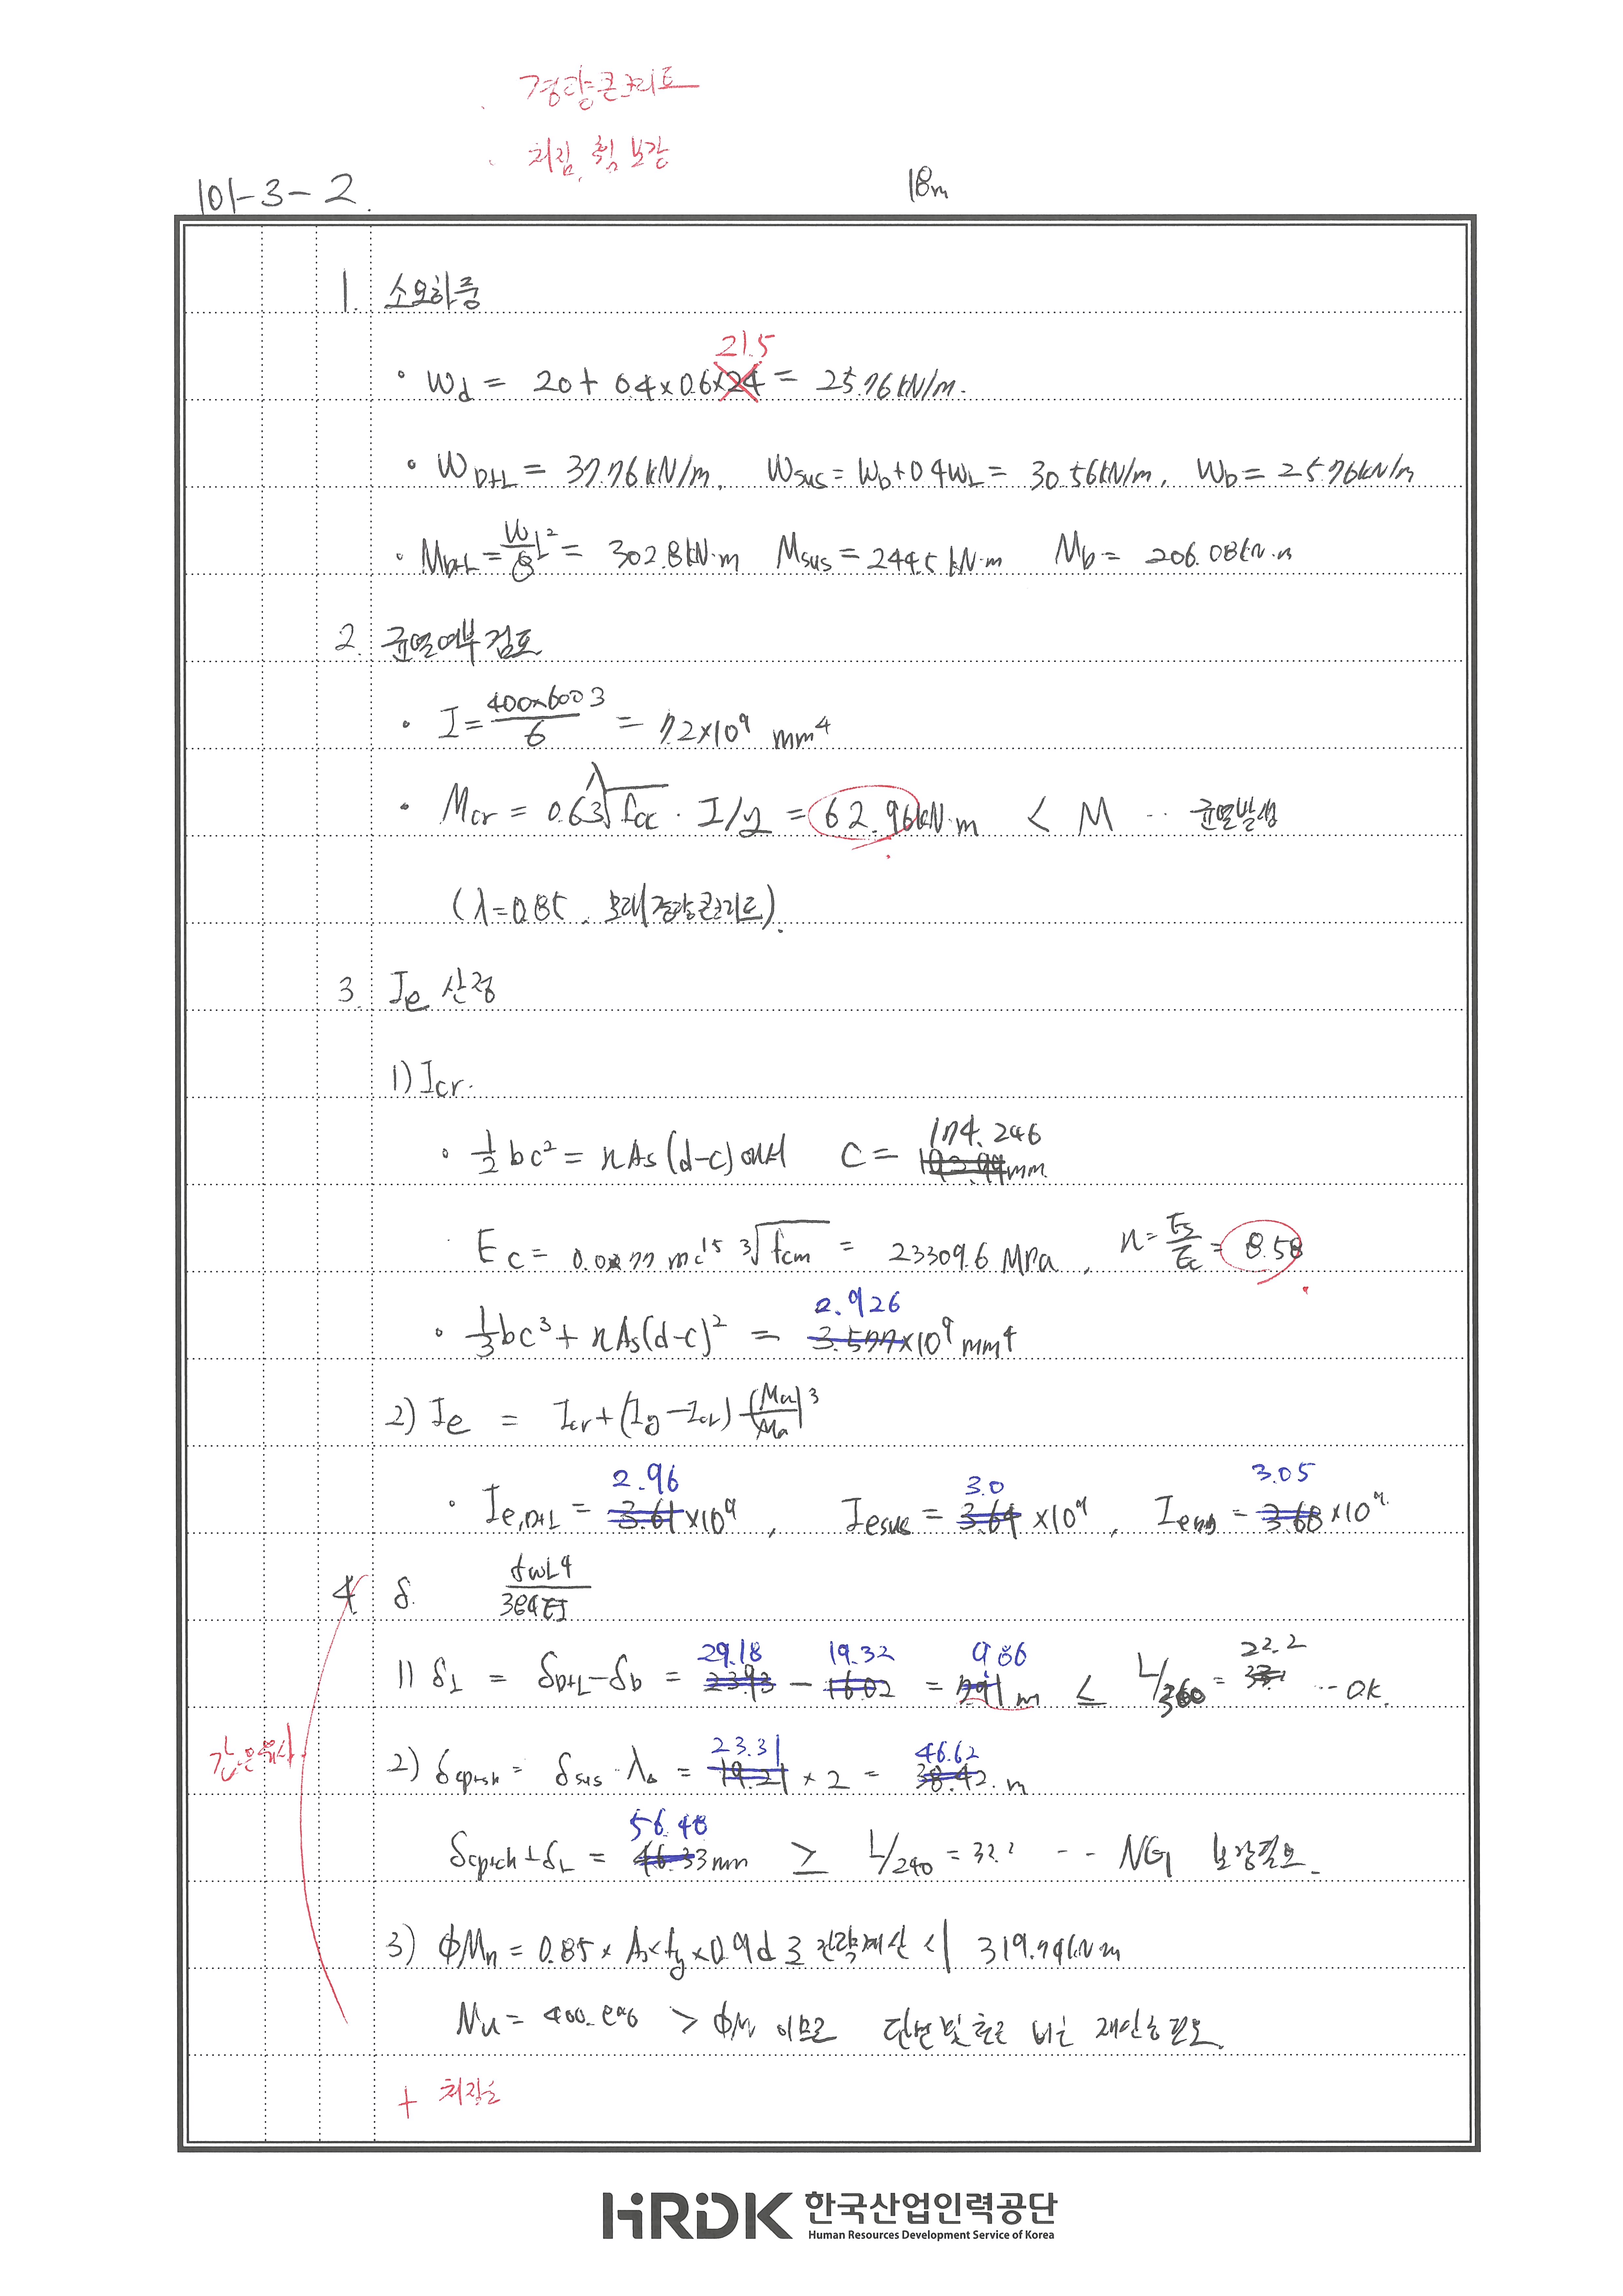 경량콘크리트
처짐, 휨 보강
101-3-2.
18m
1. 소요하중
21.5
• Wd = 20 + 0.4×0.6×24 = 25.76kN/m.
• WD+L = 37.76kN/m, Wsus = WD+0.4WL = 30.56kN/m, WD = 25.76kN/m
• MD+L = W/8 L² = 302.8kN·m Msus = 244.5kN·m MD = 206.08kN·m
2. 균열여부검토
• I = 400×600³/6 = 7.2×10⁹ mm⁴
• Mcr = 0.63λ√fck · I/y = 62.96kN·m < M ·· 균열발생
(λ=0.85, 모래경량콘크리트).
3. Ie 산정
1) Icr.
174.246
• 1/2 bc² = nAs(d-c)에서 C = mm
· Ec = 0.077 mc^1.5 ³√fcm = 23309.6 MPa, n = Es/Ec = 8.58
2.926
• 1/3 bc³ + nAs(d-c)² = 3.577×10⁹ mm⁴
2) Ie = Icr + (Ig - Icr)(Mcr/Ma)³
2.96 3.0 3.05
• Ie,D+L = 3.61×10⁹, Iesus = 3.64×10⁹, Ie = 3.68×10⁹
4 δ. 5wL⁴/384EI
29.18 19.32 9.86 22.2
1) δL = δD+L - δD = 23.93 - 16.02 = 7.91m ≤ L/360 = ··· OK.
간은
23.31 46.62
2) δcp+sh = δsus · λΔ = 19.21 × 2 = 38.42.m
56.48
δcp+sh + δL = 46.33mm ≥ L/240 = 33.3 -- NG 보강필요.
3) ΦMn = 0.85 × As×fy×0.9d로 간략계산시 319.74kN·m
Mu = 400. > ΦM 이므로 단면 및 철근 재산정필요.
+ 처짐
HRDK 한국산업인력공단
Human Resources Development Service of Korea